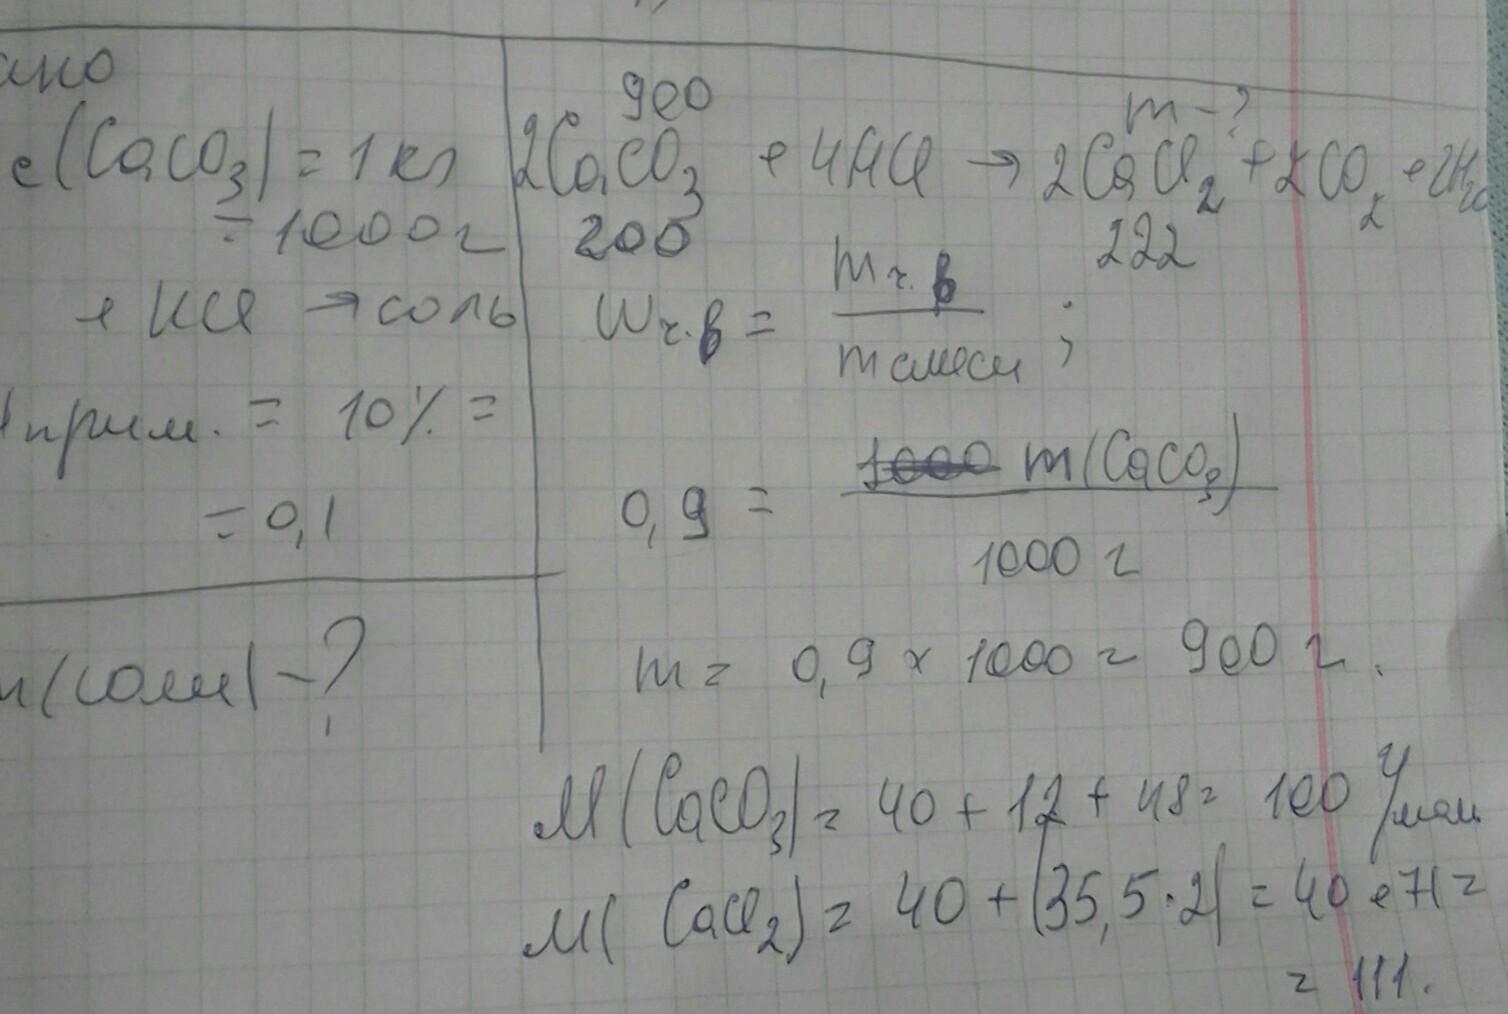 ано
(CaCO3) = 1 кг
= 1000 г
+ HCl → соль
прим. = 10% =
= 0,1
(соли) - ?
900 m - ?
2CaCO3 + 4HCl → 2CaCl2 + 2CO2 + 2H2O
200 222
Wч.в = mч.в / mсмеси ;
0,9 = m(CaCO3) / 1000 г
m = 0,9 x 1000 = 900 г.
M(CaCO3) = 40 + 12 + 48 = 100 г/моль
M(CaCl2) = 40 + (35,5·2) = 40 + 71 =
= 111.